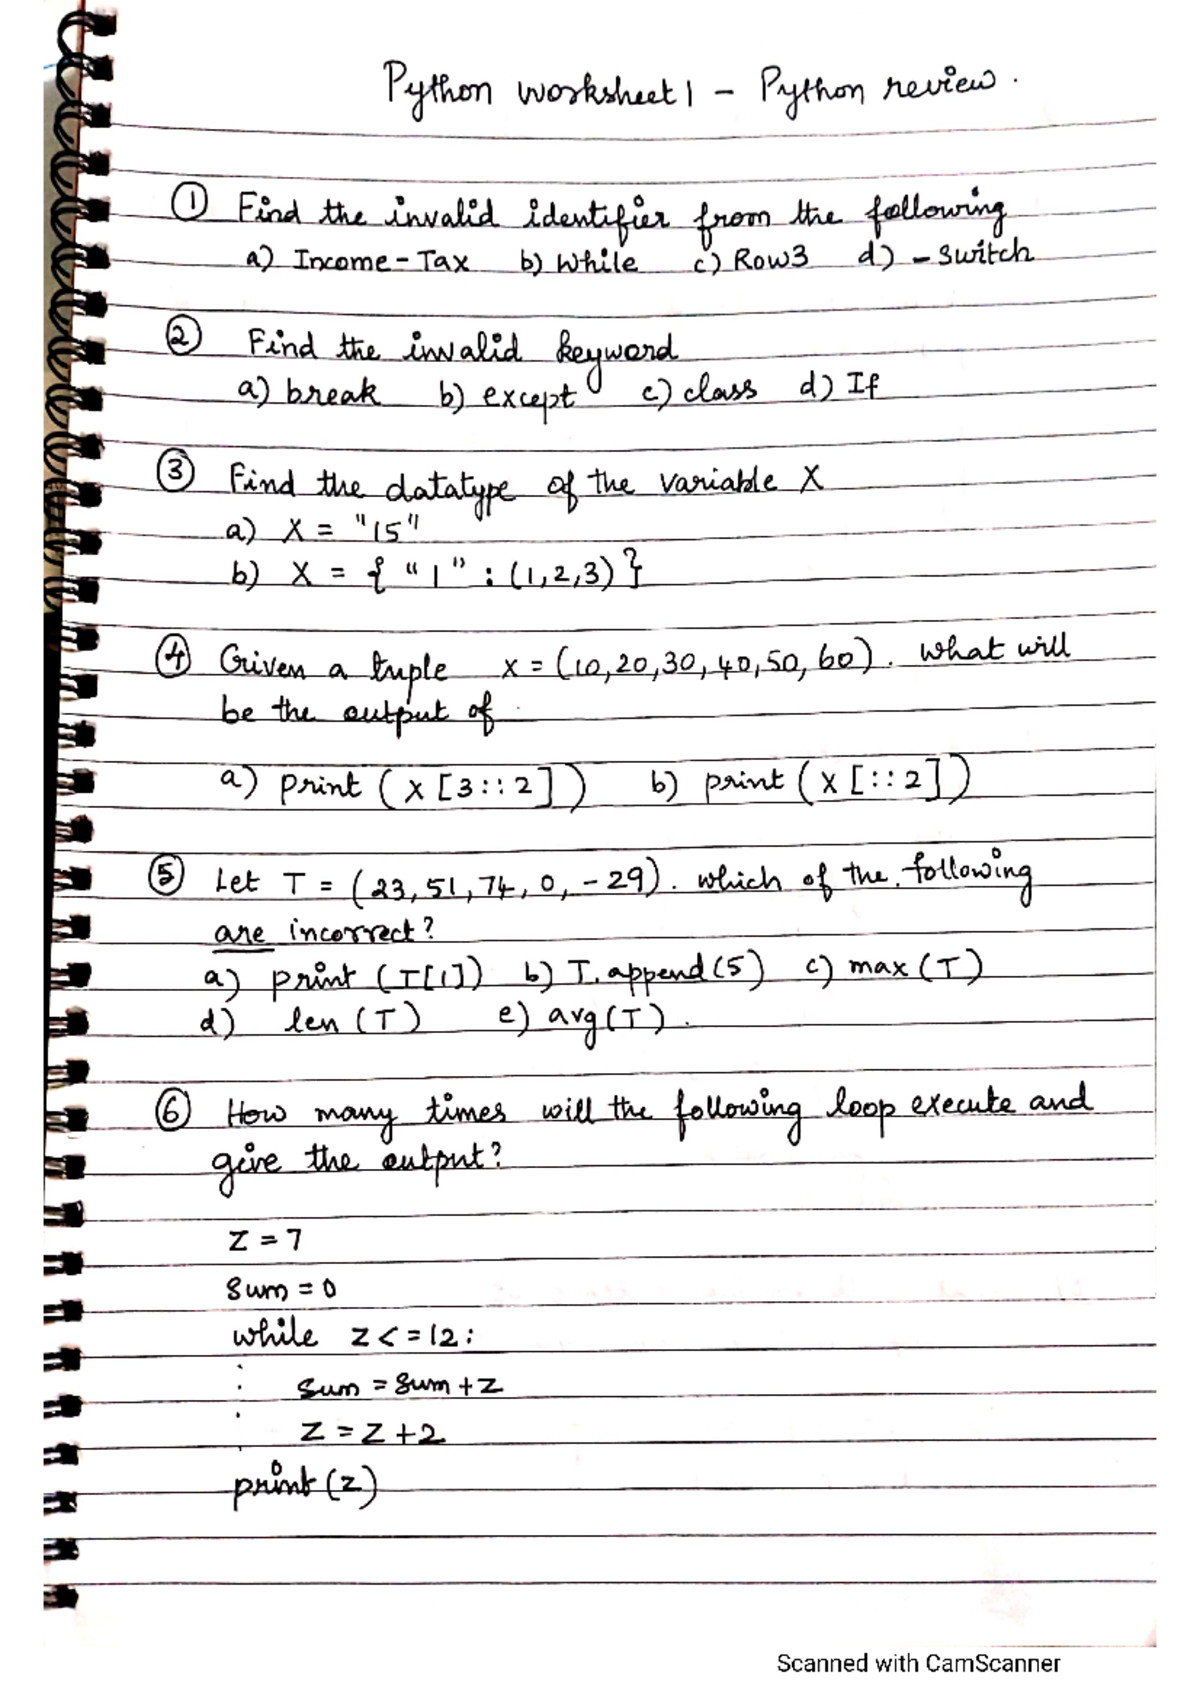 Python worksheet 1 - Python review.
① Find the invalid identifier from the following
a) Income-Tax b) While c) Row3 d) - Switch
② Find the invalid keyword
a) break b) except c) class d) If
③ Find the datatype of the variable X
a) X = "15"
b) X = { "1" : (1,2,3) }
④ Given a tuple x = (10,20,30,40,50,60). What will
be the output of
a) print (x [3::2]) b) print (x [::2])
⑤ Let T = (23,51,74,0,-29). which of the following
are incorrect?
a) print (T[1]) b) T.append(5) c) max (T)
d) len (T) e) avg(T).
⑥ How many times will the following loop execute and
give the output?
Z = 7
Sum = 0
while z <= 12:
Sum = Sum + Z
Z = Z + 2
print (z)
Scanned with CamScanner